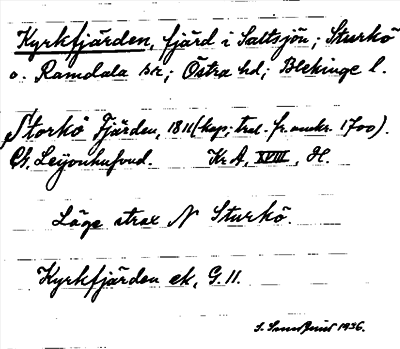 Kyrkfjärden, fjärd i Saltsjön; Sturkö
o. Ramdala snr; Östra hd; Blekinge l.
"Storkö Fjärden, 1811 (kop; trol. fr. omkr. 1700).
Ch. Leijonhufvud. Kr A, XVIII, H.
Läge strax N Sturkö.
Kyrkfjärden ek, G. 11.
1936.